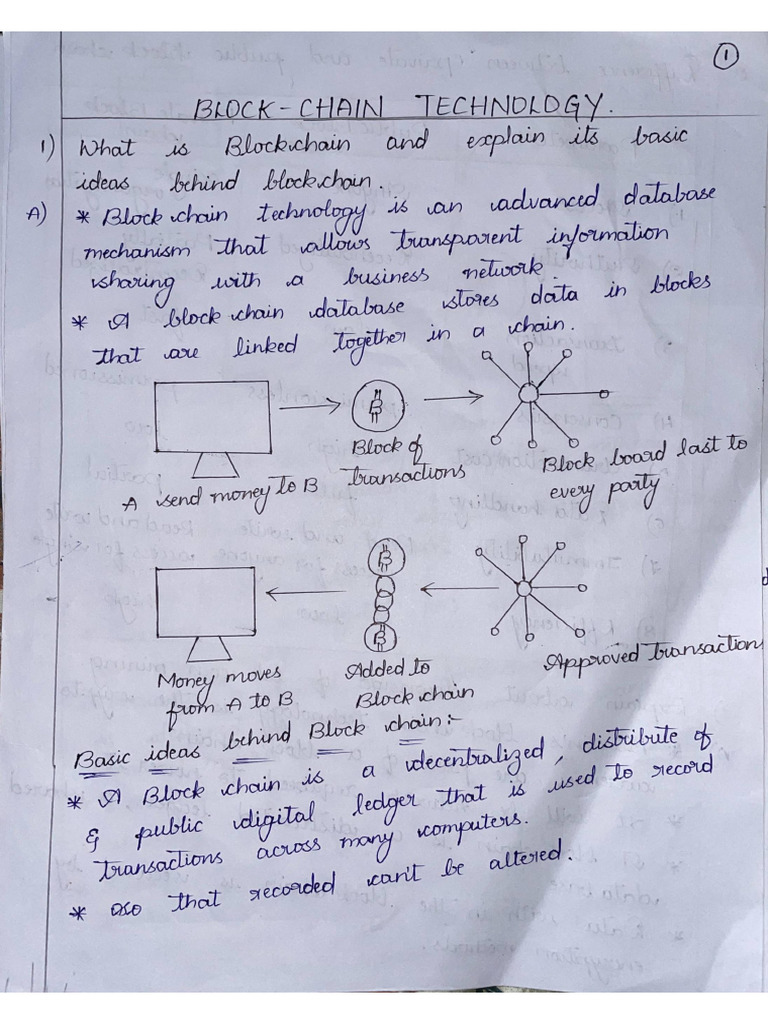 1
BLOCK-CHAIN TECHNOLOGY.
1) What is Blockchain and explain its basic
ideas behind blockchain.
A) * Block chain technology is an advanced database
mechanism that allows transparent information
sharing with a business network.
* A block chain database stores data in blocks
that are linked together in a chain.
A send money to B
Block of
transactions
Block board last to
every party
Money moves
from A to B
Added to
Block chain
Approved transaction
Basic ideas behind Block chain:-
* A Block chain is a decentralized, distribute of
& public digital ledger that is used to record
transactions across many computers.
* oso that recorded can't be altered.